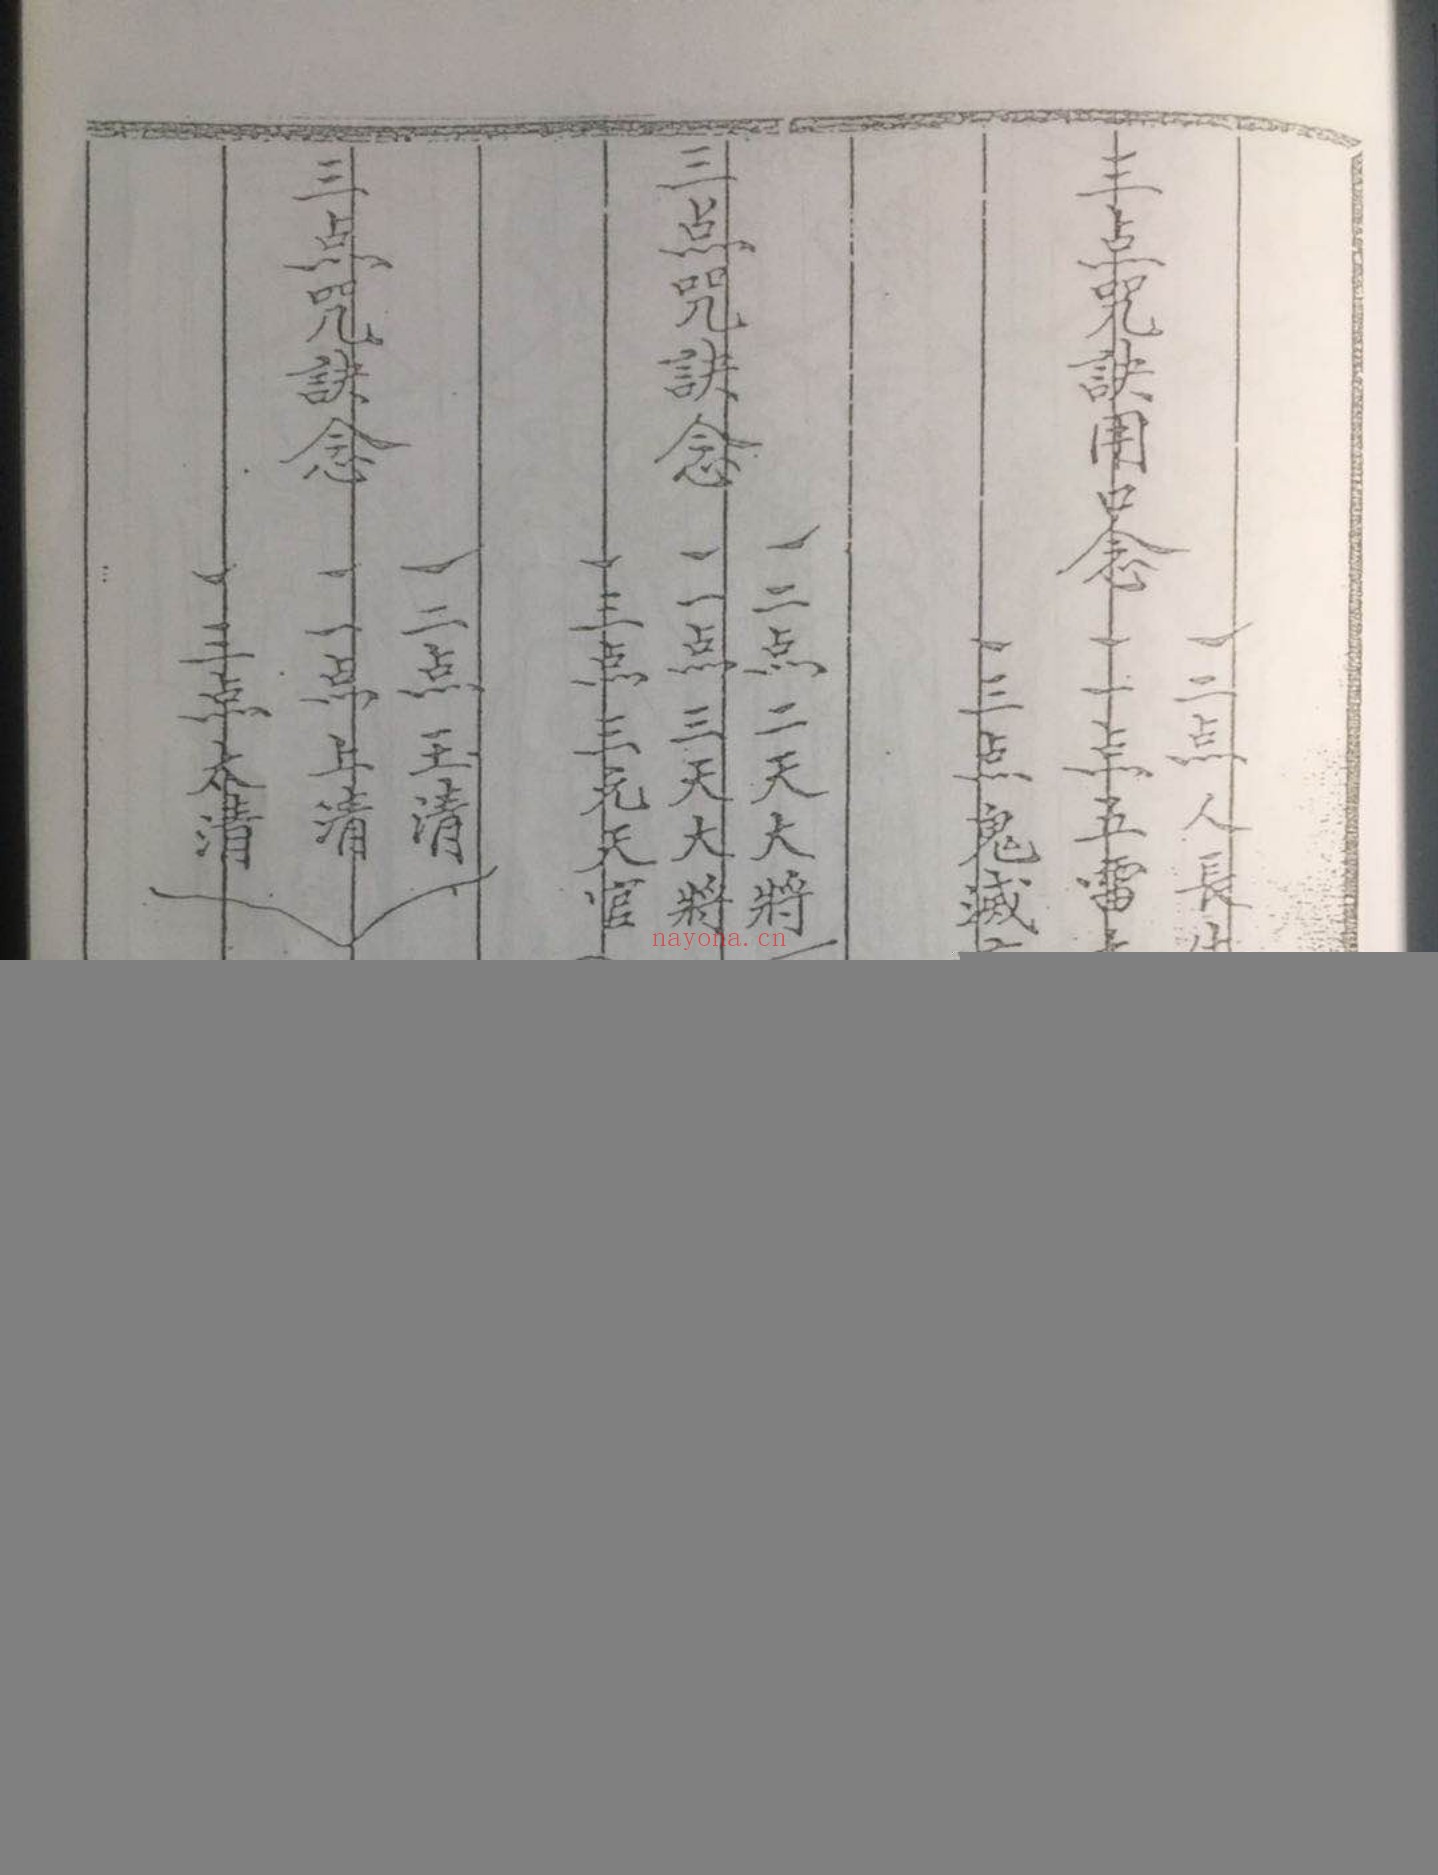 三点咒訣用口念
二点人長
一点五雷
三点鬼滅
三点咒訣念
二点二天大將
一点三天大將
三点三元天官
三点咒訣念
二点玉清
一点上清
三点太清
nayona.cn